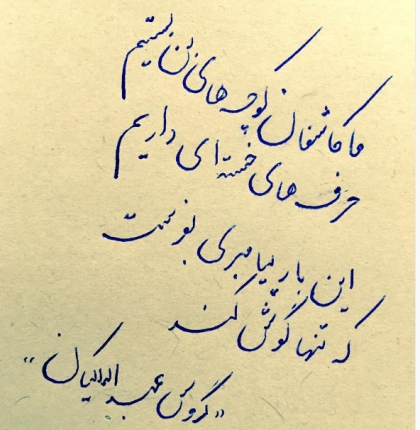 ما کاشفان کوچه های بُن بستیم
حرف های خسته ای داریم
این بار پیامبری بفرست
که تنها گوش کند
«گروس عبدالملکیان»